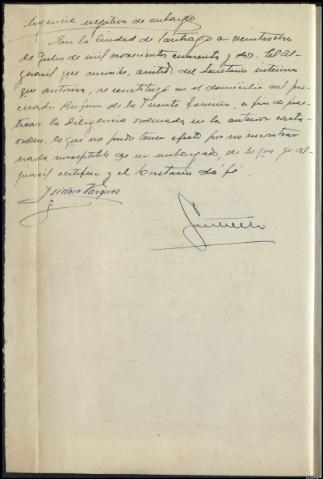 Diligencia negativa de embargo
En la Ciudad de Santiago a veintiocho
de Julio de mil novecientos cuarenta y dos. El Al-
guacil que suscribe, asistido del Secretario interino
que autoriza, se constituyó en el domicilio del pro-
cesado de la Puente a fin de prac-
ticar la diligencia ordenada en la anterior carta-
orden, lo que no pudo tener efecto por no encontrar
nada susceptible de ser embargado, de lo que yo al-
guacil certifico y el Secretario doy fé.
Isidoro Vazquez